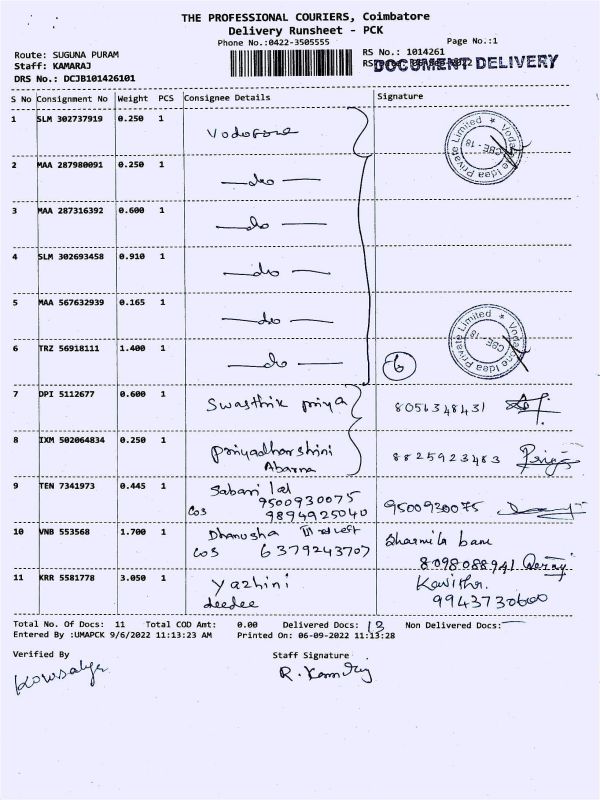 THE PROFESSIONAL COURIERS, Coimbatore
Delivery Runsheet - PCK
Phone No.:0422-3505555 Page No.:1
Route: SUGUNA PURAM RS No.: 1014261
Staff: KAMARAJ DOCUMENT DELIVERY
DRS No.: DCJB101426101
S No Consignment No Weight PCS Consignee Details Signature
1 SLM 302737919 0.250 1 Vodofone
Vodafone Idea Private Limited ★ CBE - 18
2 MAA 287980091 0.250 1 —do—
3 MAA 287316392 0.600 1 —do—
4 SLM 302693458 0.910 1 —do—
5 MAA 567632939 0.165 1 —do—
Vodafone Idea Private Limited ★ CBE - 18
6 TRZ 56918111 1.400 1 —do— 6
7 DPI 5112677 0.600 1 Swasthik priya 8056348431
8 IXM 502064834 0.250 1 Priyadharshini 8825923483
Abarna
9 TEN 7341973 0.445 1 Sabari lal
9500930075 9500930075
cos 9894925040
10 VNB 553568 1.700 1 Dhanusha Sharmila banu
cos 6379243707 8098088941
11 KRR 5581778 3.050 1 Yazhini Kavitha
deedee 9943730600
Total No. Of Docs: 11 Total COD Amt: 0.00 Delivered Docs: 13 Non Delivered Docs:
Entered By :UMAPCK 9/6/2022 11:13:23 AM Printed On: 06-09-2022 11:13:28
Verified By Staff Signature
Kowsalya R. Kamaraj